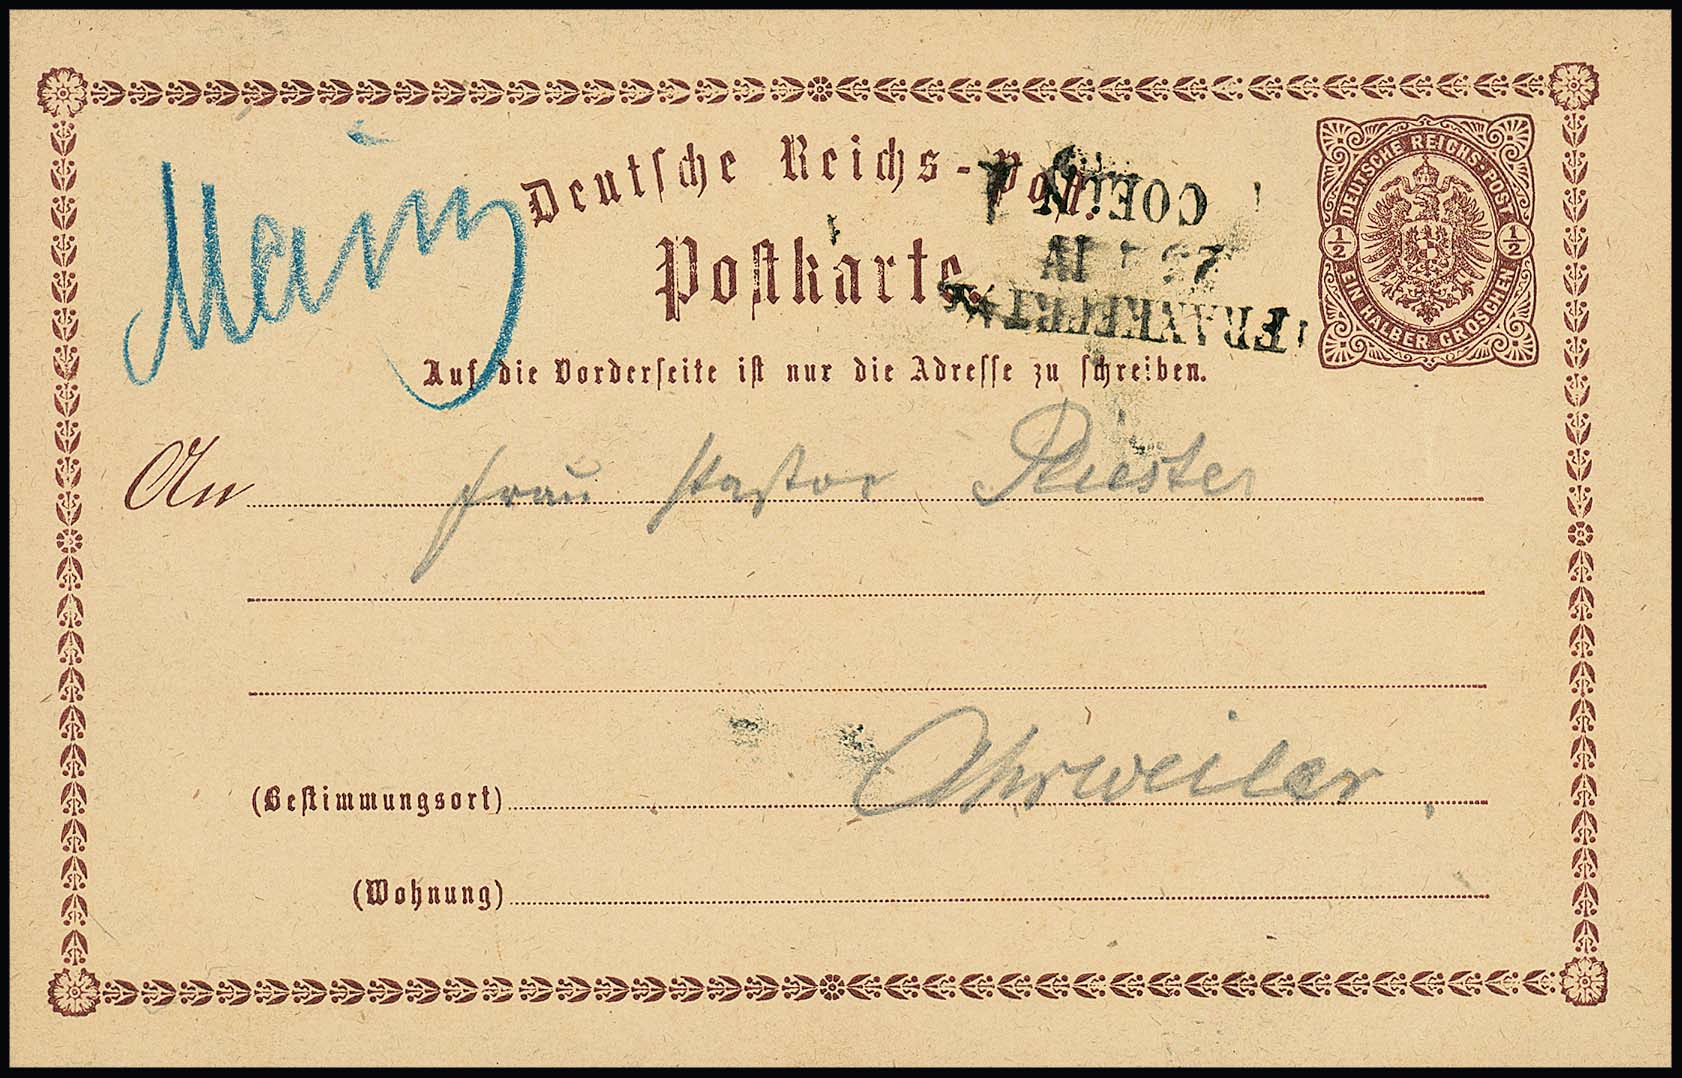 Mainz
Deutsche Reichs-Post.
Postkarte.
DEUTSCHE REICHS-POST
½ ½
EIN HALBER GROSCHEN
COELN
IV
FRANKFURT
Auf die Vorderseite ist nur die Adresse zu schreiben.
An Frau Pastor Riester
(Bestimmungsort) Ahrweiler.
(Wohnung)